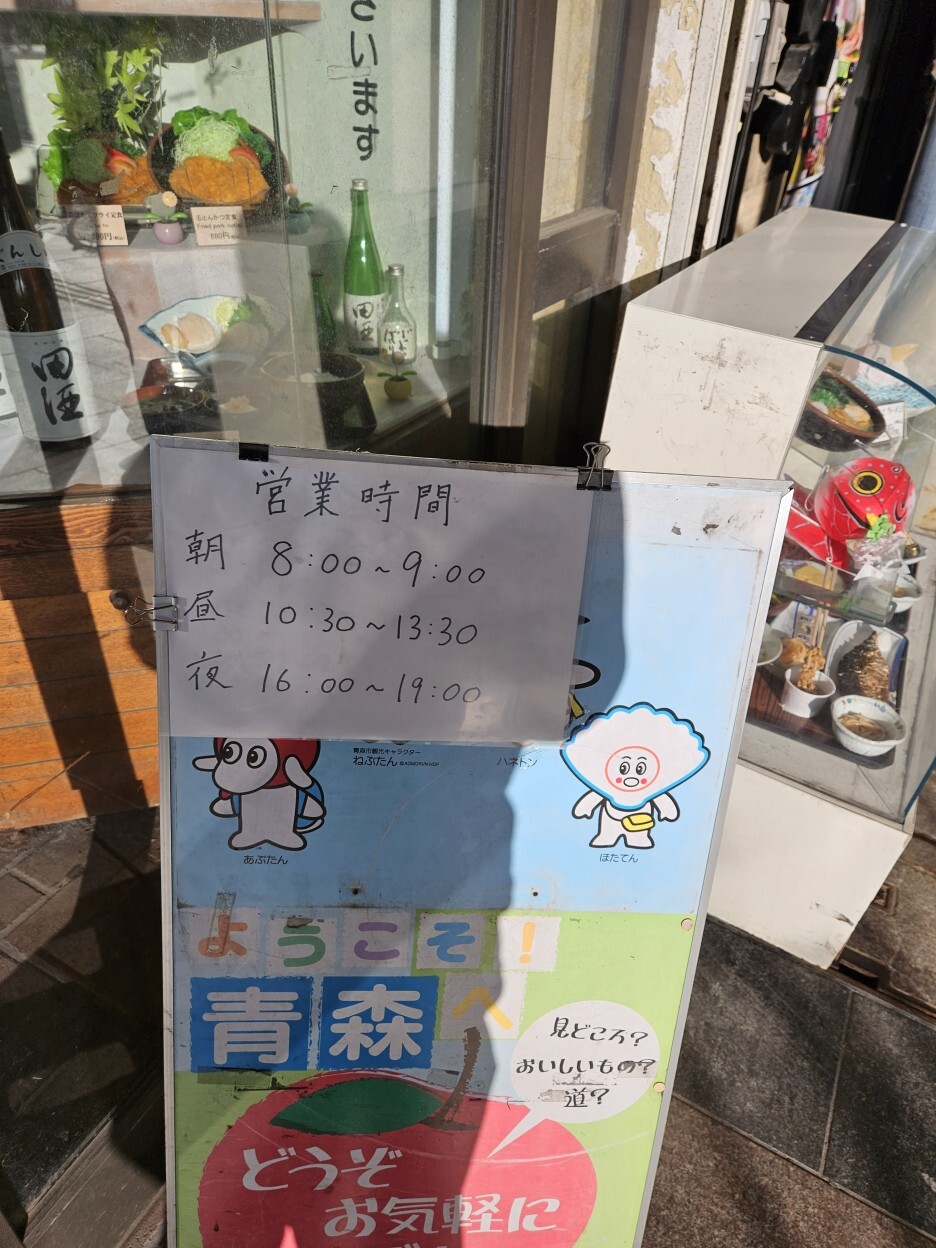 さいます
定食
円(税込)
とんかつ定食
Fried pork cutlet
円(税込)
田酒
田酒
営業時間
朝 8:00~9:00
昼 10:30~13:30
夜 16:00~19:00
青森市観光キャラクター
ねぶたん
ハネトン
あぷたん
ほたてん
ようこそ!
青森へ
見どころ?
おいしいもの?
道?
どうぞ
お気軽に